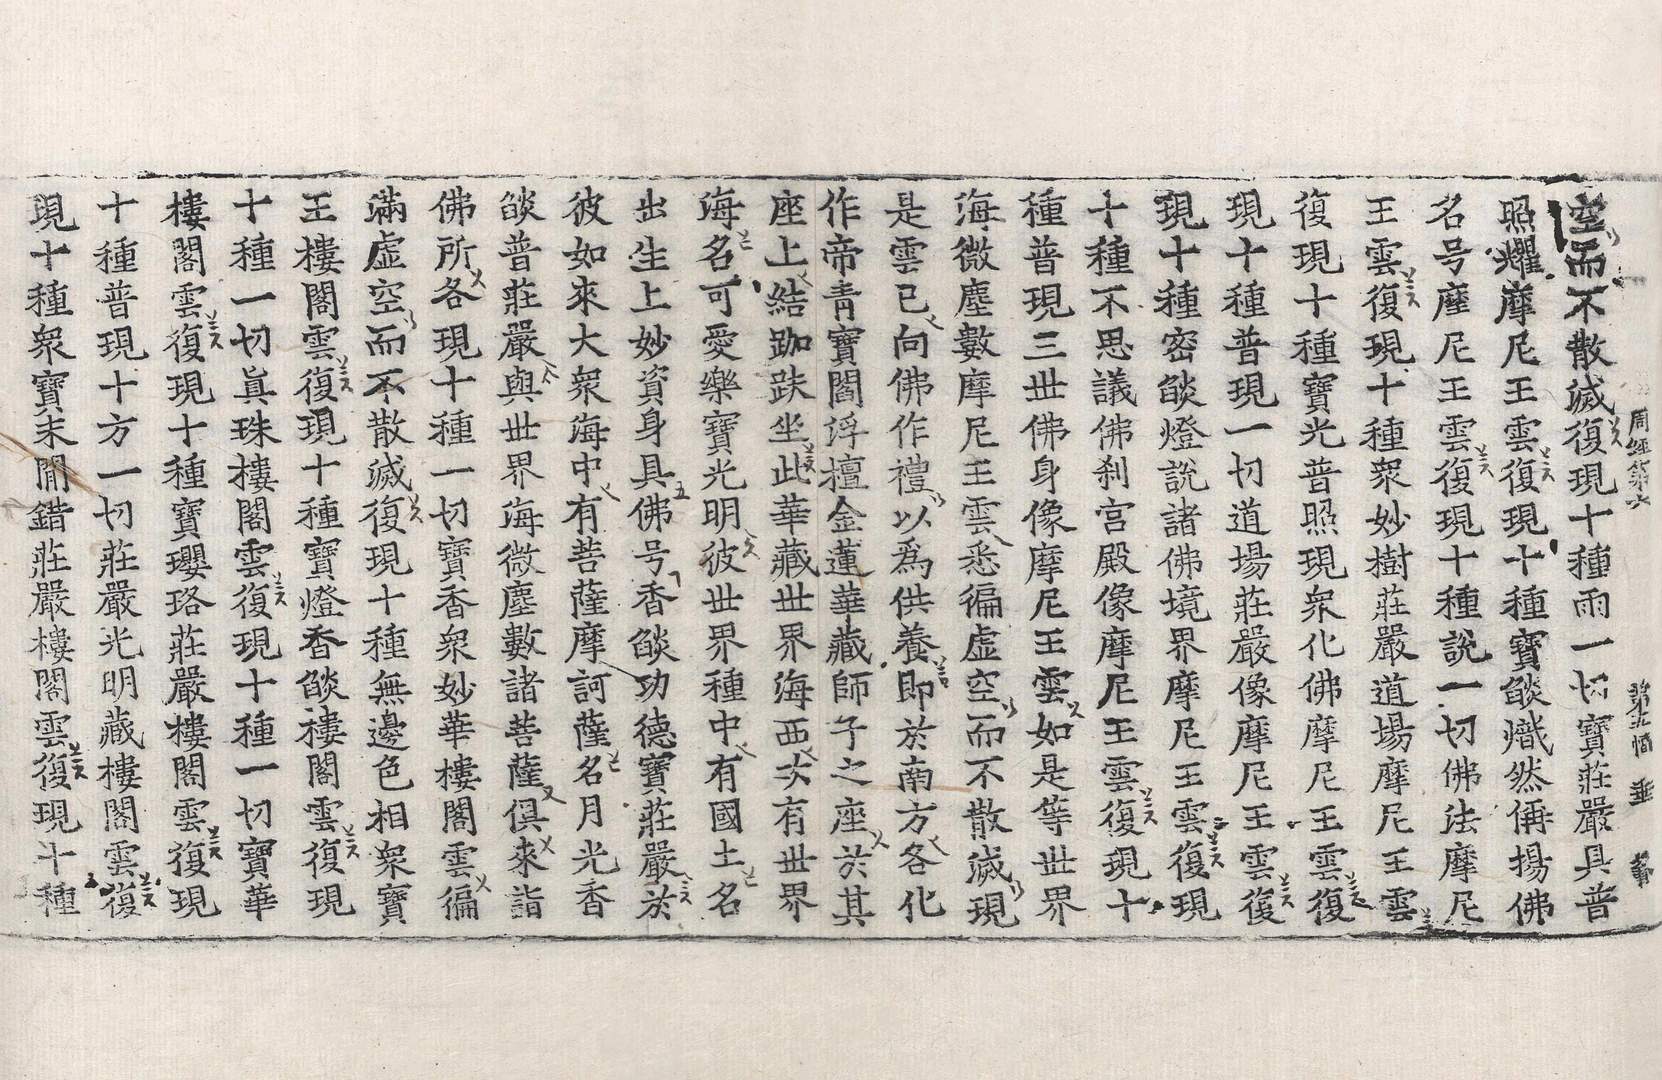 周經第六 第五幅
空而不散滅復現十種雨一切寶莊嚴具普
照耀摩尼王雲復現十種寶𦦨熾然俻揚佛
名号摩尼王雲復現十種說一切佛法摩尼
王雲復現十種衆妙樹莊嚴道場摩尼王雲
復現十種寶光普照現衆化佛摩尼王雲復
現十種普現一切道場莊嚴像摩尼王雲復
現十種密𦦨燈說諸佛境界摩尼王雲復現
十種不思議佛刹宫殿像摩尼王雲復現十
種普現三世佛身像摩尼王雲如是等世界
海微塵數摩尼王雲悉徧虛空而不散滅現
是雲已向佛作禮以爲供養即於南方各化
作帝青寶閻浮檀金蓮華藏師子之座於其
座上結跏趺坐此華藏世界海西次有世界
海名可愛樂寶光明彼世界種中有國土名
出生上妙資身具佛号香𦦨功德寶莊嚴於
彼如來大衆海中有菩薩摩訶薩名月光香
𦦨普莊嚴與世界海微塵數諸菩薩俱來詣
佛所各現十種一切寶香衆妙華樓閣雲徧
滿虛空而不散滅復現十種無邊色相衆寶
王樓閣雲復現十種寶燈香𦦨樓閣雲復現
十種一切眞珠樓閣雲復現十種一切寶華
樓閣雲復現十種寶瓔珞莊嚴樓閣雲復現
十種普現十方一切莊嚴光明藏樓閣雲復
現十種衆寶末閒錯莊嚴樓閣雲復現十種